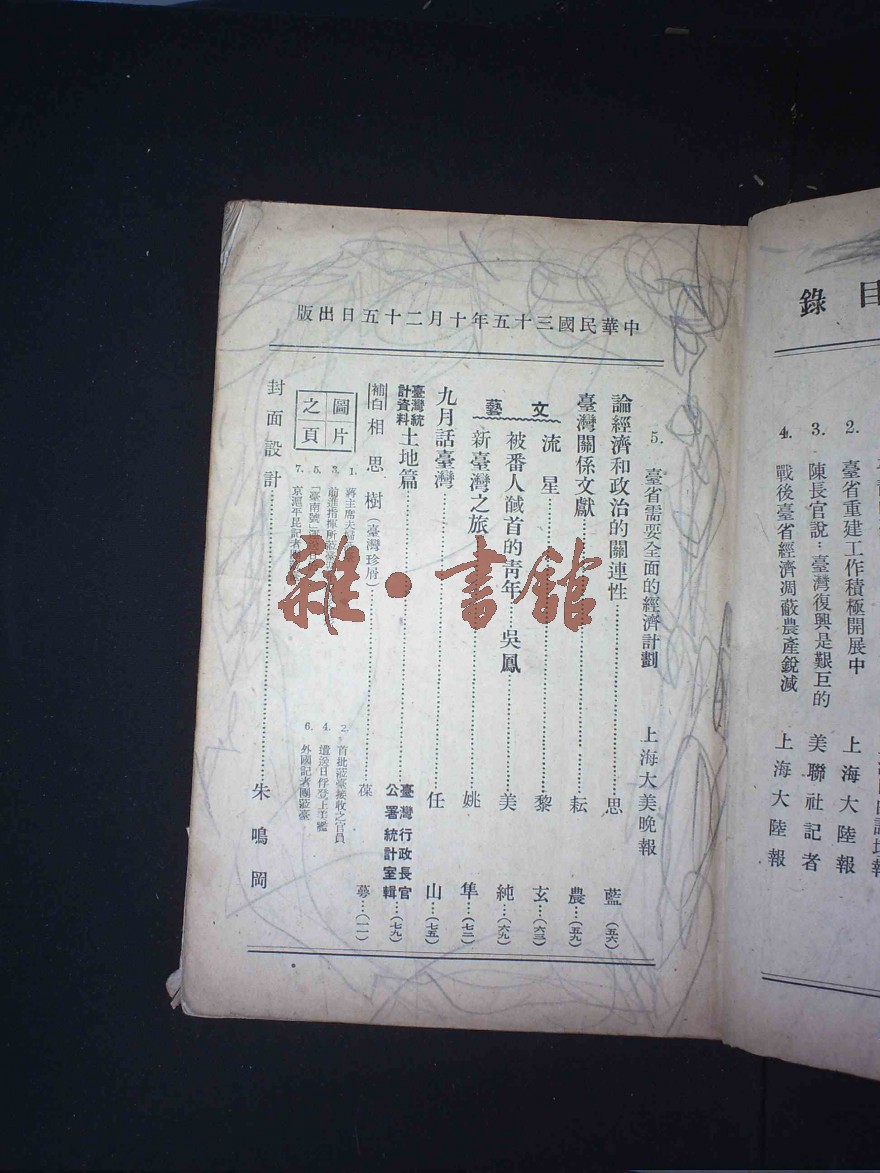 目錄
2. 臺省重建工作積極開展中 上海大陸報
3. 陳長官說：臺灣復興是艱巨的 美聯社記者
4. 戰後臺省經濟凋蔽農產銳減 上海大陸報
中華民國三十五年十月二十五日出版
5. 臺省需要全面的經濟計劃 上海大美晚報
論經濟和政治的關連性 思藍（五六）
臺灣關係文獻 耘農（五九）
文藝
流星 黎玄（六三）
被番人馘首的靑年……吳鳳 美純（六九）
新臺灣之旅 姚隼（七二）
九月話臺灣 任山（七五）
臺灣統計資料 土地篇 臺灣行政長官公署統計室輯（七九）
補白 相思樹（臺灣珍屑） 葆蓼（一一）
圖片之頁
1. 蔣主席夫婦
2. 首批蒞臺接收之官員
3. 前進指揮所蒞臺
4. 遣送日俘登上美艦
5. 「臺南號」
6. 外國記者團蒞臺
7. 京滬平昆記者
封面設計 朱鳴岡
雜·書館